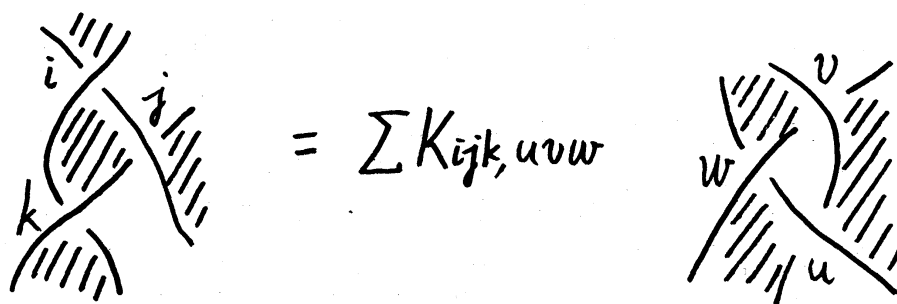 i j k = ∑ K_{ijk, uvw} w v u